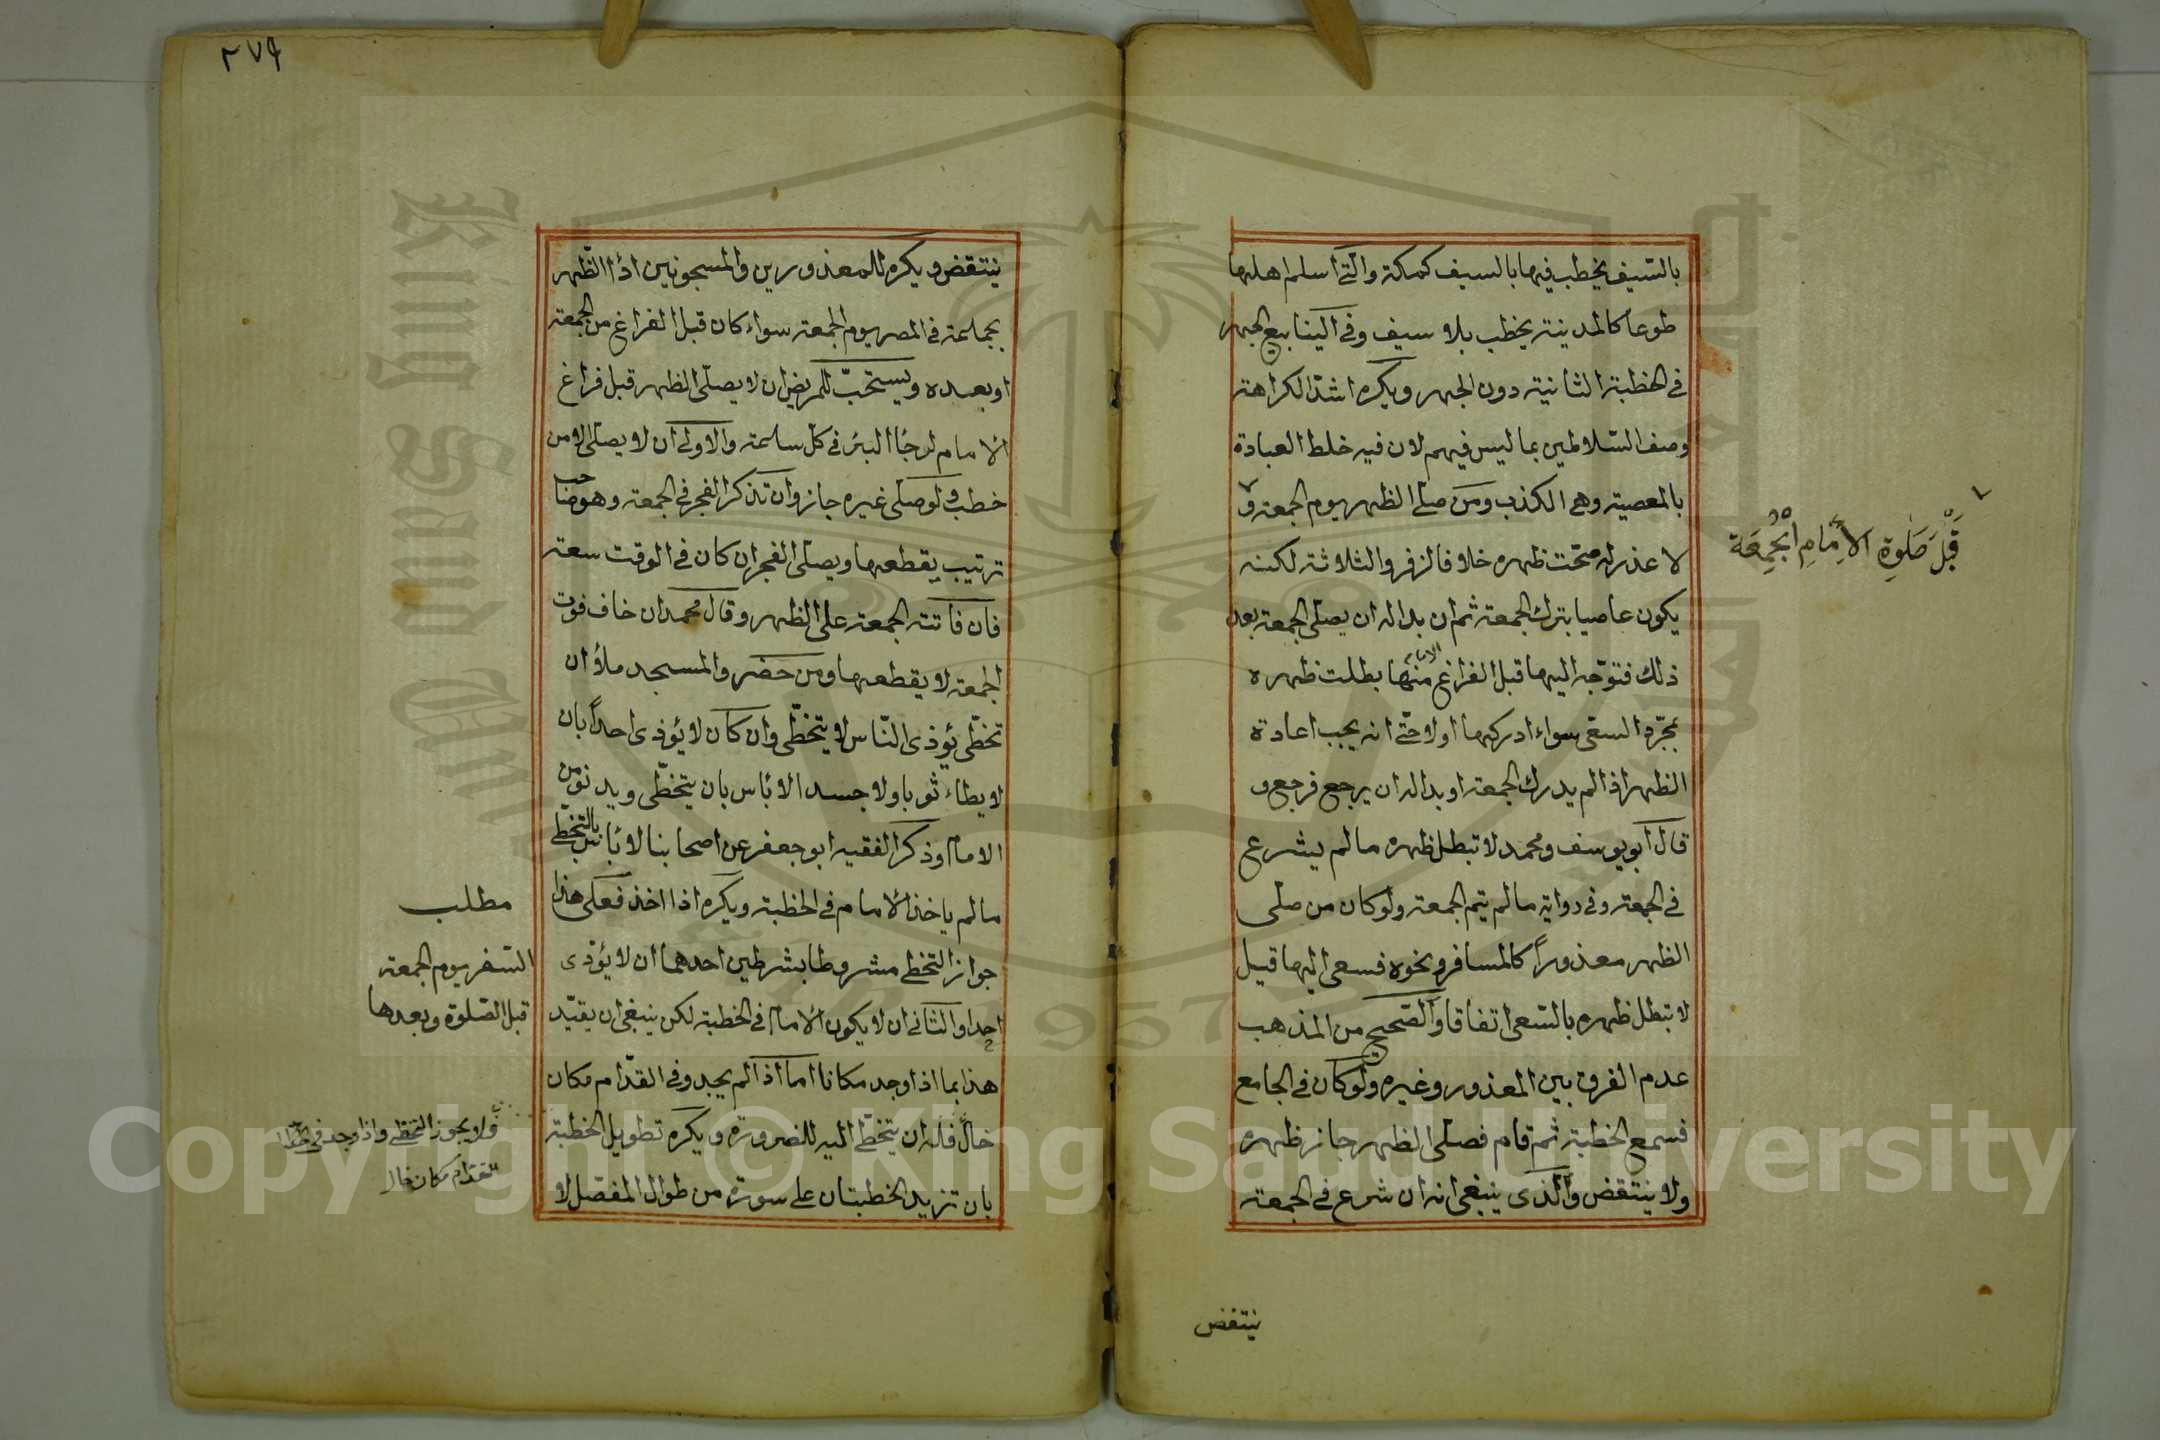 بالسّيف يخطب فيها بالسيف كمكة والّتي اسلم اهلها
طوعا كالمدينة يخطب بلا سيف وفي الينابيع الجهر
في الخطبة الثانية دون الجهر ويكره اشدّ الكراهة
وصف السّلاطين بما ليس فيهم لان فيه خلط العبادة
بالمعصية وهي الكذب ومن صلّى الظهر يوم الجمعة و
لا عذر له صحّت ظهره خلافا لزفر والثلاثة لكنه
يكون عاصيا بترك الجمعة ثم ان بدا له ان يصلّي الجمعة بعد
ذلك فتوجّه اليها قبل الفراغ الامام منها بطلت ظهره
بمجرّد السعي سواء ادركها اولا حتّى انه يجب اعادة
الظهر اذا لم يدرك الجمعة او بدا له ان يرجع فرجع و
قال ابو يوسف ومحمد لا تبطل ظهره ما لم يشرع
في الجمعة وفي رواية ما لم يتم الجمعة ولو كان من صلى
الظهر معذوراً كالمسافر ونحوه فسعى اليها قيل
لا تبطل ظهره بالسّعي اتفاقا والصّحيح من المذهب
عدم الفرق بين المعذور وغيره ولو كان في الجامع
فسمع الخطبة ثم قام فصلّى الظهر جاز ظهره
ولا ينتقض والّذي ينبغي انه ان شرع في الجمعة
قَبْلَ صَلٰوةِ الأِمَامِ الْجُمِعَة
ينتقض
٢٧٩
ينتقض ويكره للمعذورين والمسجونين اداء الظهر
بجماعة في المصر يوم الجمعة سواء كان قبل الفراغ من الجمعة
او بعده ويستحبّ للمريض ان لا يصلّي الظهر قبل فراغ
الامام لرجاء البرء في كل ساعة والاولى ان لا يصلي الا من
خطب ولو صلى غيره جاز وان تذكر الفجر في الجمعة وهو صاحب
ترتيب يقطعها ويصلّي الفجر ان كان في الوقت سعة
فان فاتته الجمعة على الظهر وقال محمد ان خاف فوت
الجمعة لا يقطعها ومن حضر والمسجد ملأ ان
تخطّى يؤذي النّاس لا يتخطّى وان كان لا يؤذي احداً بان
لا يطاء ثوبا ولا جسدا لا بأس بان يتخطّى ويدنو من
الامام وذكر الفقيه ابو جعفر عن اصحابنا لا بأس بالتخطّي
ما لم ياخذ الامام في الخطبة ويكره اذا اخذ فعلى هذا
جواز التخطّي مشروط بشرطين احدهما ان لا يؤذي
احدا والثاني ان لا يكون الامام في الخطبة لكن ينبغي ان يقيّد
هذا بما اذا وجد مكانا اما اذا لم يجد وفي القدّام مكان
خال فله ان يتخطّى اليه للضرورة ويكره تطويل الخطبة
بان تزيد الخطبتان على سورة من طوال المفصّل لا
مطلب
السّفر يوم الجمعة
قبل الصّلوة وبعدها
ولا يجوز التخطي واذا وجد في
تقدام مكان خال
Copyright © King Saud University
King Saud University
1957